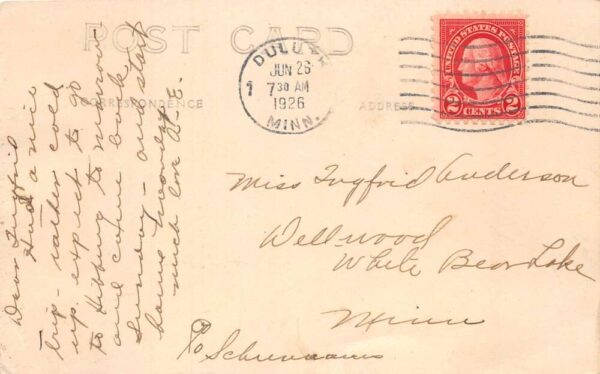 POST CARD
CORRESPONDENCE
ADDRESS
DULUTH
JUN 26
7 30 AM
1
1926
MINN.
UNITED STATES POSTAGE
2 CENTS 2
Dear Ingfrid
Had a nice
trip - rather cold
up. expect to go
to Hibbing to morrow
and come back
Sunday - and start
home Monday
much love A. E.
Miss Ingfrid Anderson
Wellwood
White Bear Lake
Minn